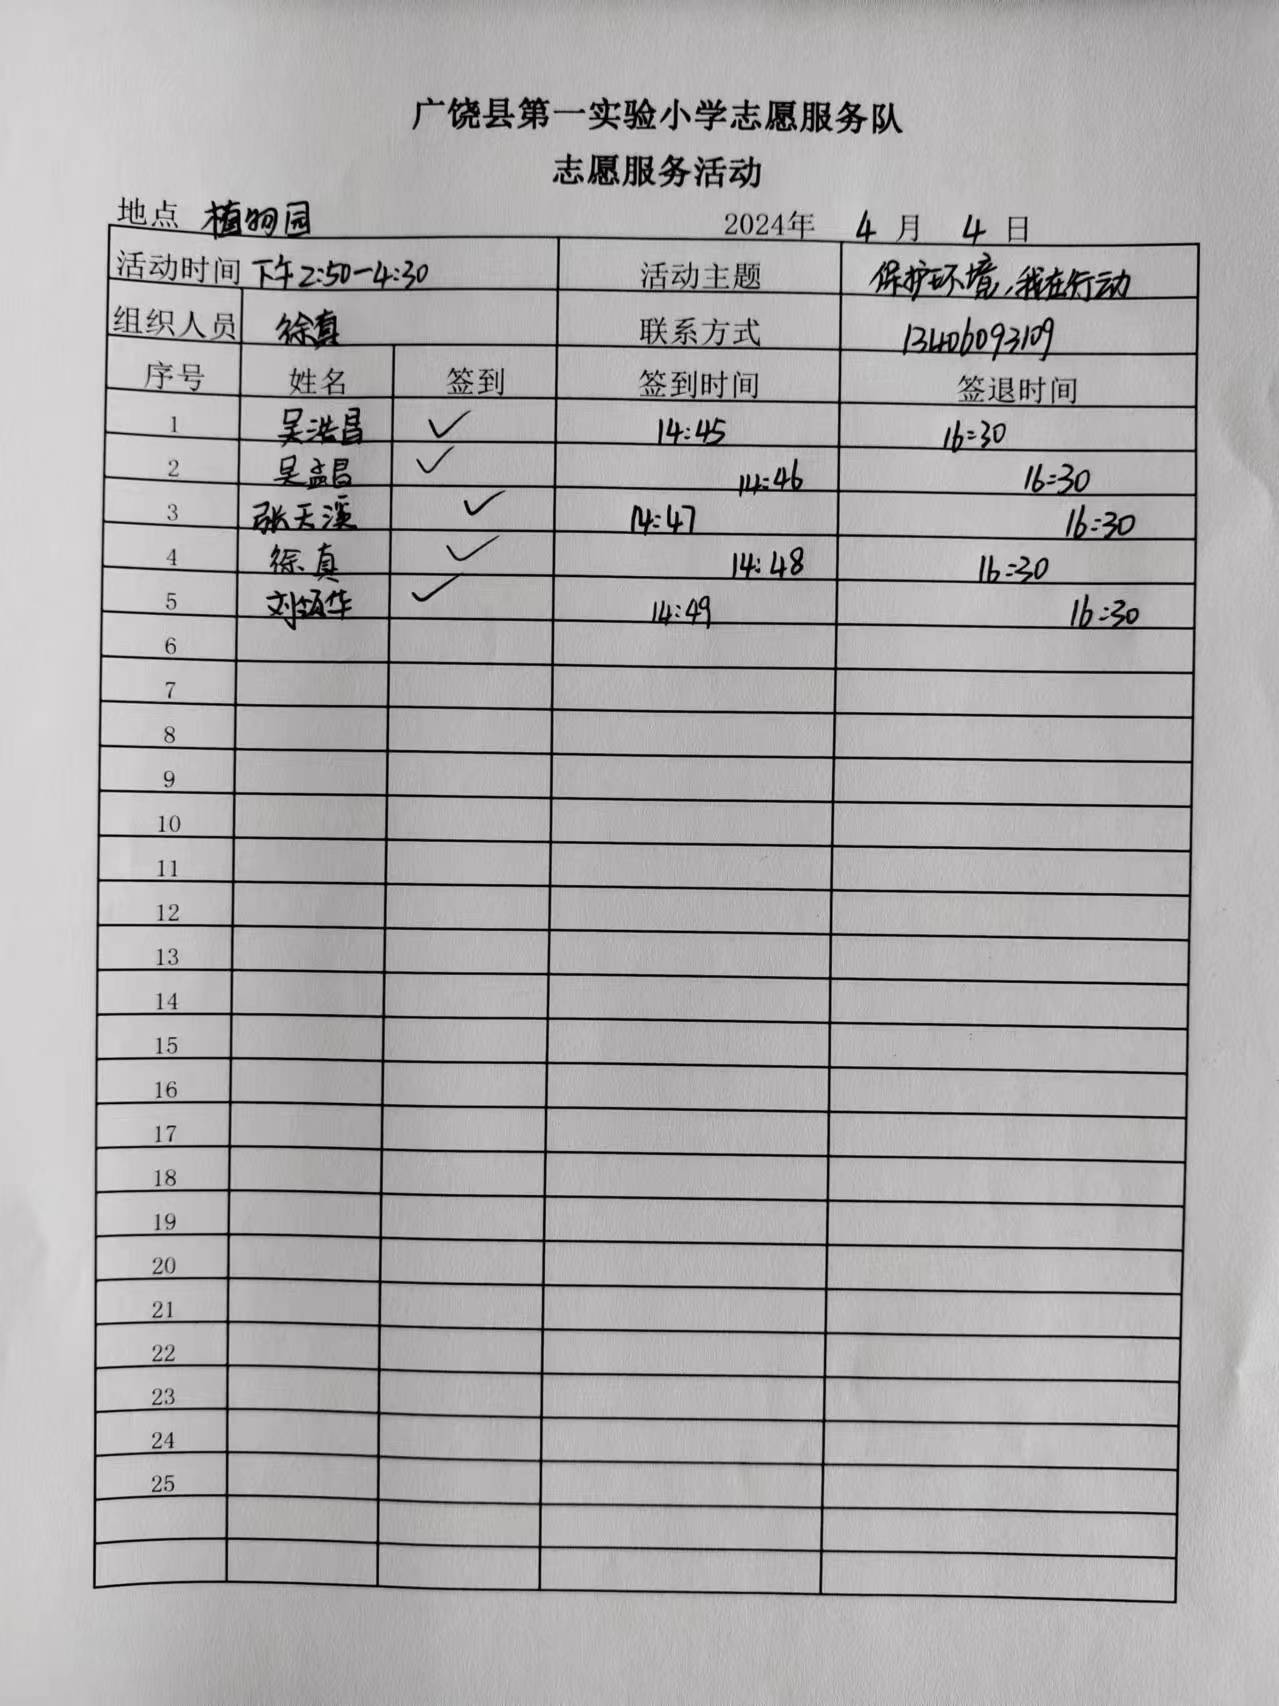 广饶县第一实验小学志愿服务队
志愿服务活动
地点 植物园 2024年 4 月 4 日
活动时间 下午2:50-4:30 活动主题 保护环境,我在行动
组织人员 徐真 联系方式 13406093109
序号 姓名 签到 签到时间 签退时间
1 吴浩昌 ✓ 14:45 16:30
2 吴孟昌 ✓ 14:46 16:30
3 张天溪 ✓ 14:47 16:30
4 徐真 ✓ 14:48 16:30
5 刘领华 ✓ 14:49 16:30
6
7
8
9
10
11
12
13
14
15
16
17
18
19
20
21
22
23
24
25